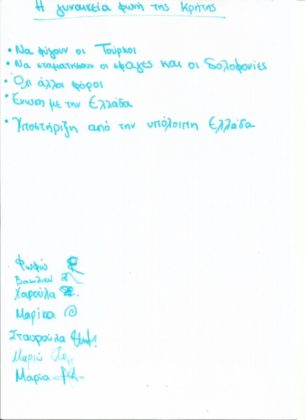 Η γυναικεία φωνή της Κρήτης
• Να φύγουν οι Τούρκοι
• Να σταματήσουν οι σφαγές και οι δολοφονίες
• Όχι άλλοι φόροι
• Ένωση με την Ελλάδα
• Υποστήριξη από την υπόλοιπη Ελλάδα
Φωφώ
Βασιλική
Χαρούλα
Μαρίκα
Σταυρούλα
Μαριώ
Μαρία